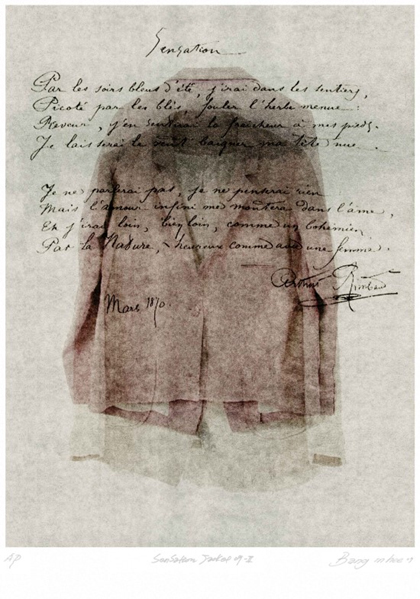 Sensation
Par les soirs bleus d'été, j'irai dans les sentiers,
Picoté par les blés, fouler l'herbe menue:
Rêveur, j'en sentirai la fraîcheur à mes pieds.
Je laisserai le vent baigner ma tête nue...
Je ne parlerai pas, je ne penserai rien
Mais l'amour infini me montera dans l'âme,
Et j'irai loin, bien loin, comme un bohémien
Par la Nature, heureux comme avec une femme.
Arthur Rimbaud
Mars 1870.
AP
09-II